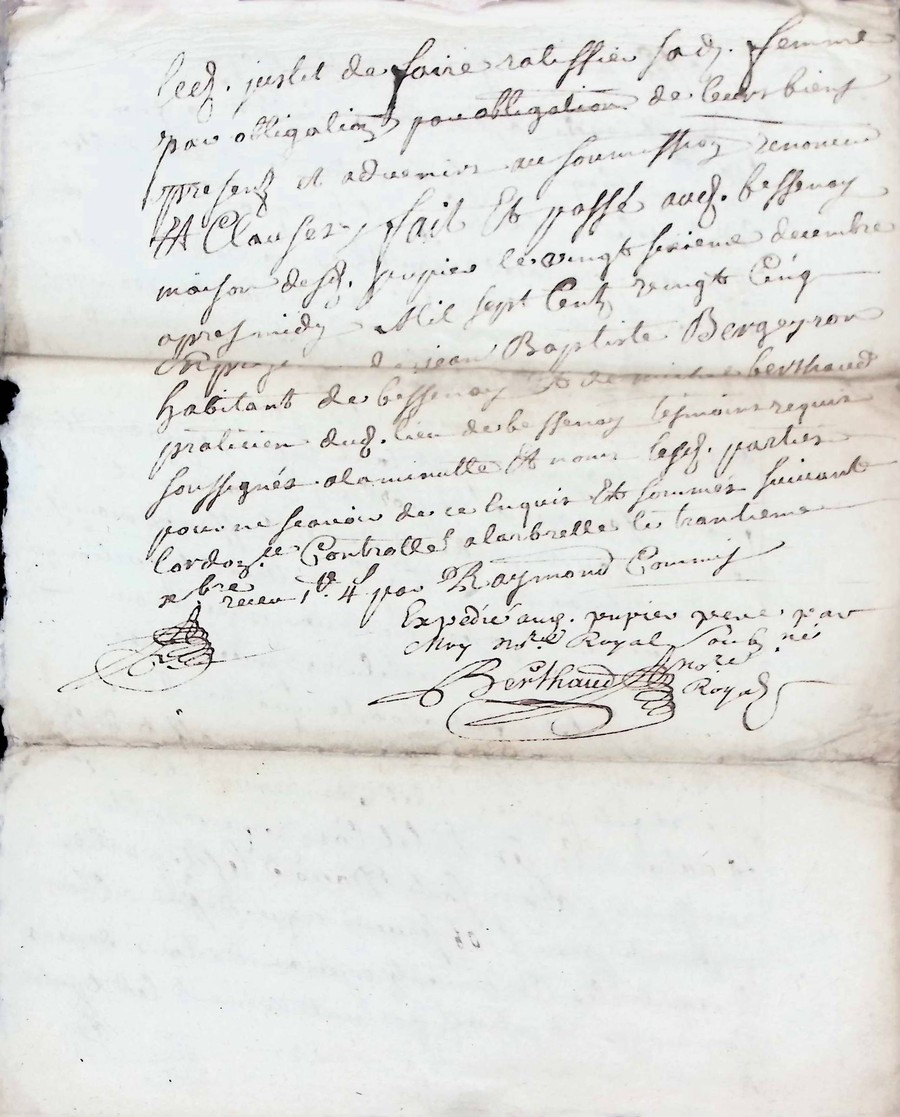 led. justet de faire ratiffier sad. femme
par obligation par obligation de leurs biens
presents et advenirs au soumission renoncia
et Clauses, fait Et passé aud. bessenay
maison desd. pupier le vingt seizieme decembre
apres midy Mil sept Cent vingt Cinq
jean Baptiste Bergeyron
habitant de bessenay Et de michel berthaud
praticien dud. lieu de bessenay tesmoins requis
soussignés a la minutte Et nous lesd. parties
pour ne scavoir de ce Enquis Et sommés suivant
lordon.ce Controllé a larbrelle le trantieme
xbre receu 1tt 4s par Raymond Commis
Expedié aud. pupier par
Moy no.re Royal Soub.né
Berthaud no.re
Royal